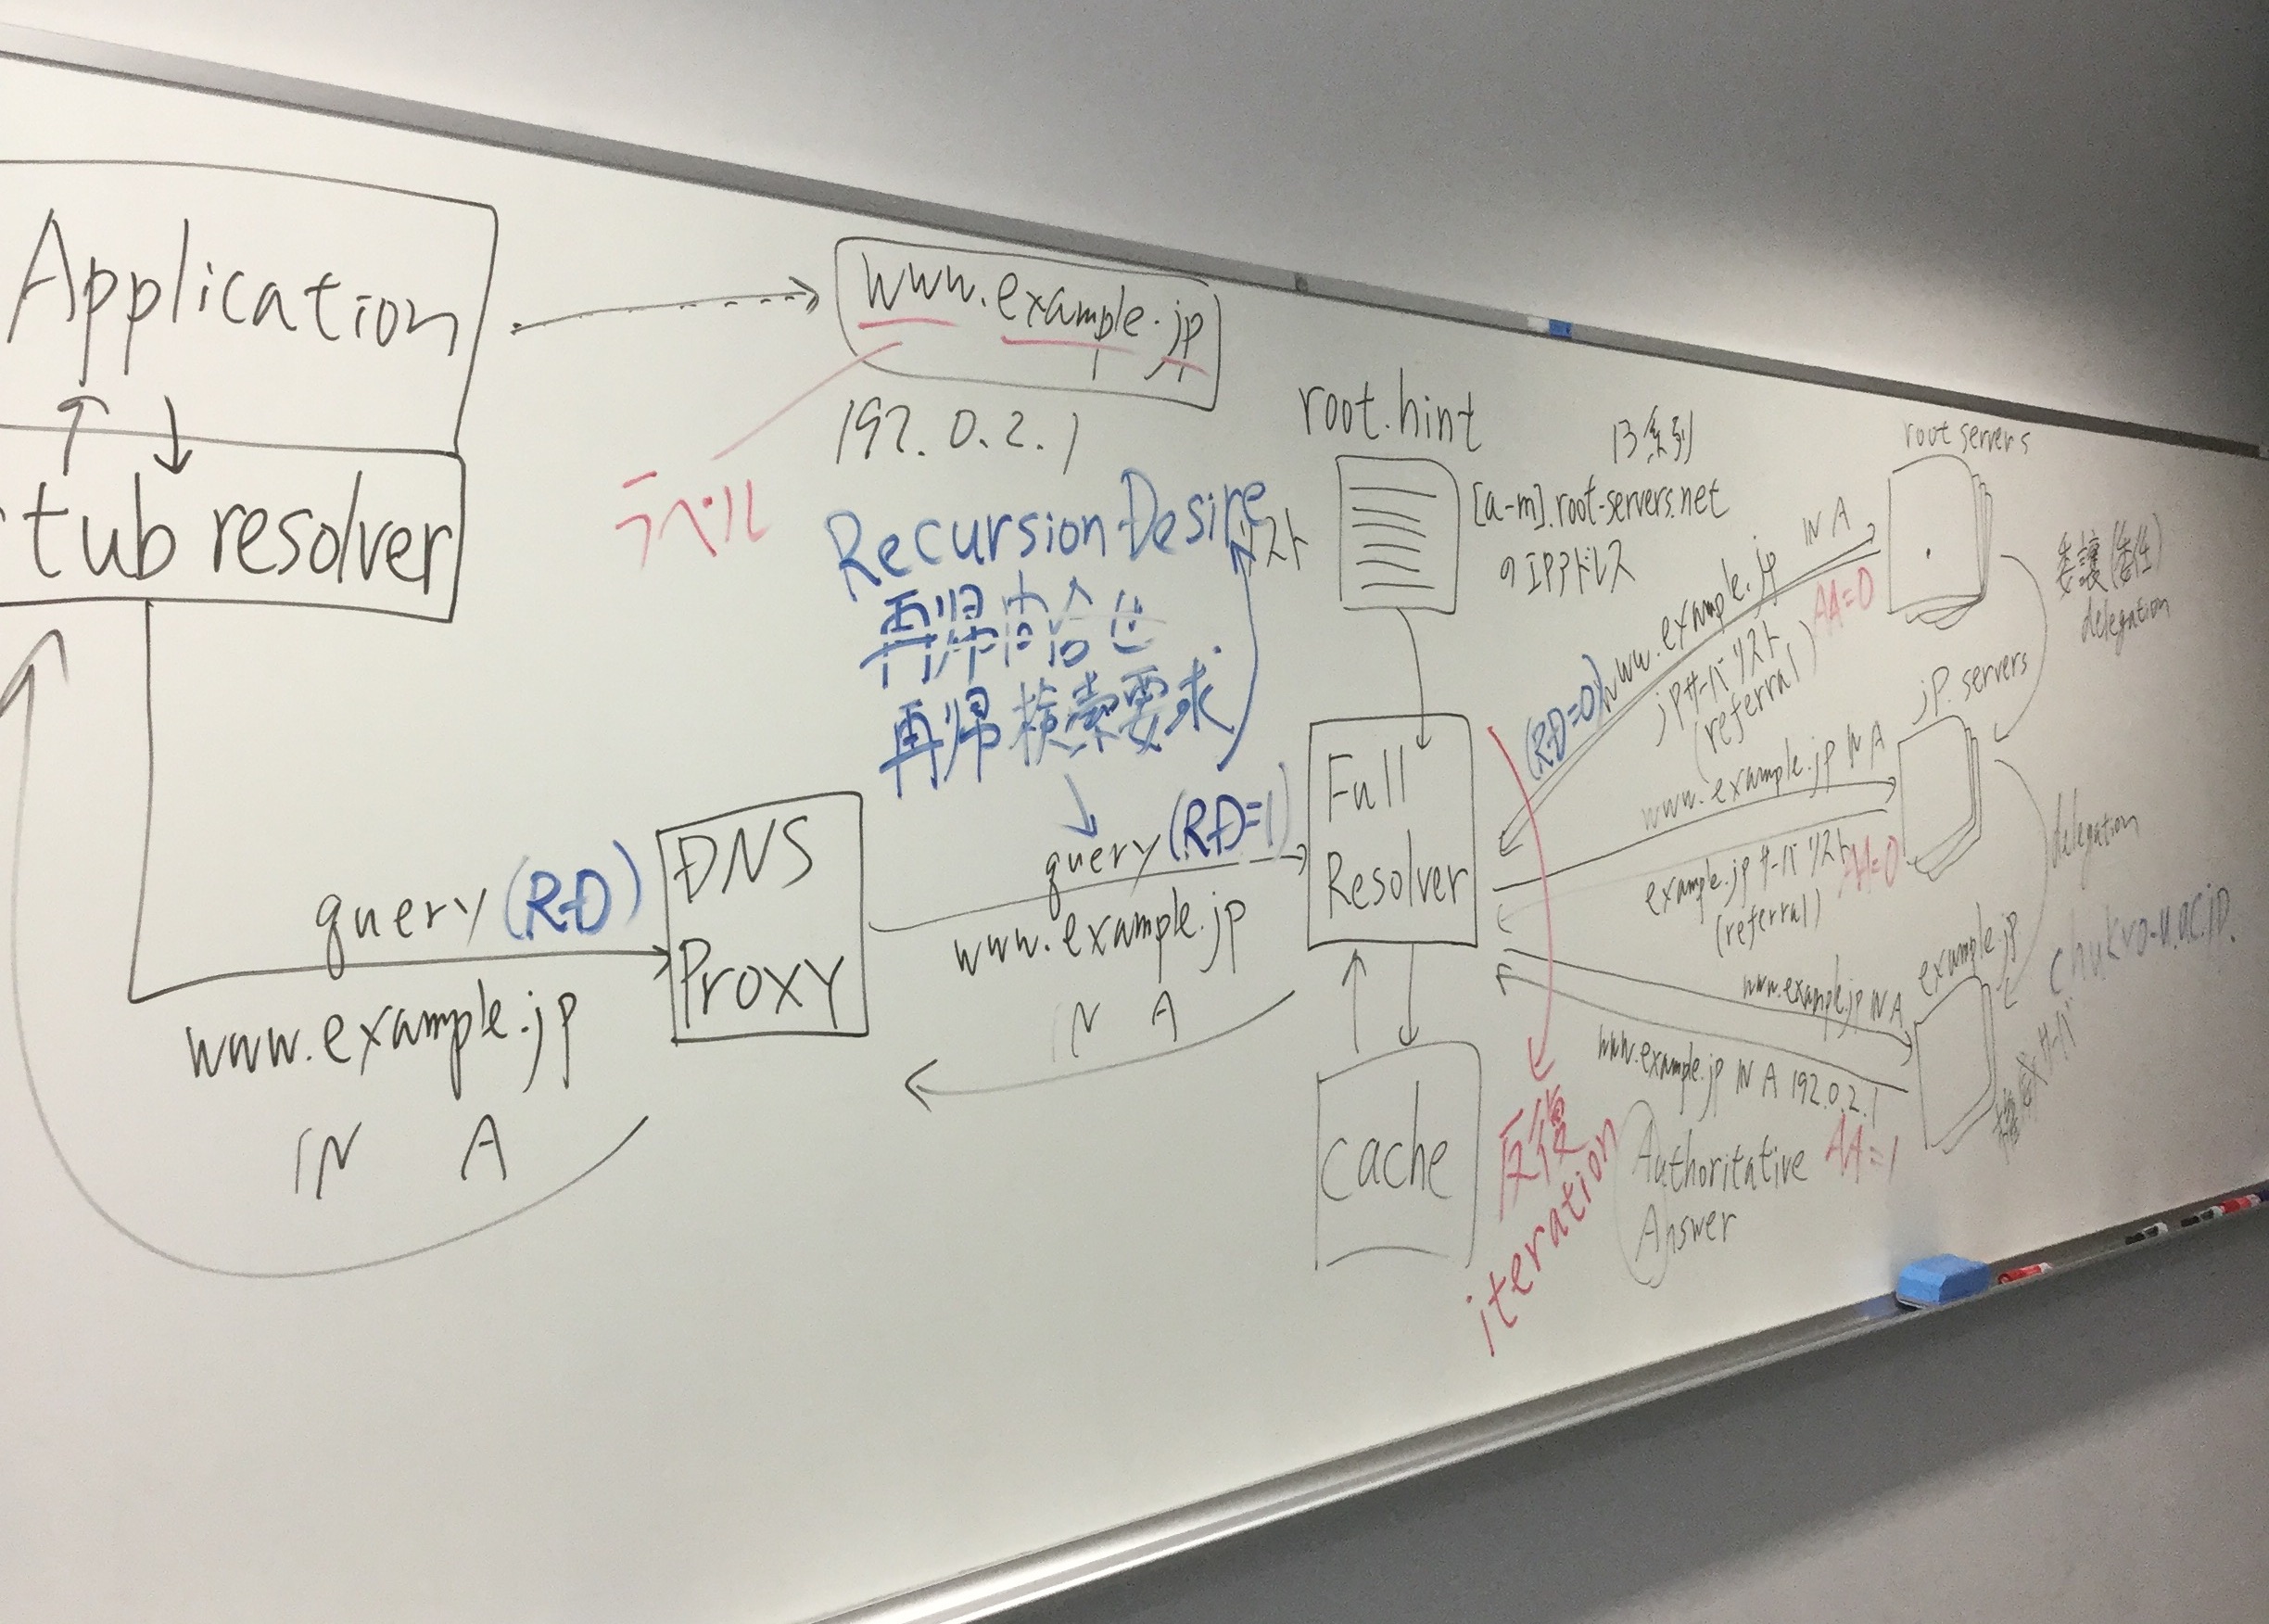 Application
tub resolver
www.example.jp
192.0.2.1
ラベル
Recursion Desire
再帰問合せ
再帰検索要求
リスト
query (RD)
www.example.jp
IN A
DNS
Proxy
query (RD=1)
www.example.jp
IN A
root.hint
13系列
[a-m].root-servers.net
のIPアドレス
Full
Resolver
cache
反復
iteration
root servers
.
(RD=0) www.example.jp IN A
AA=0
jpサーバリスト
(referral)
委譲(委任)
delegation
jp servers
www.example.jp IN A
example.jp サーバリスト AA=0
(referral)
delegation
example.jp
www.example.jp IN A
www.example.jp IN A 192.0.2.1
Authoritative AA=1
Answer